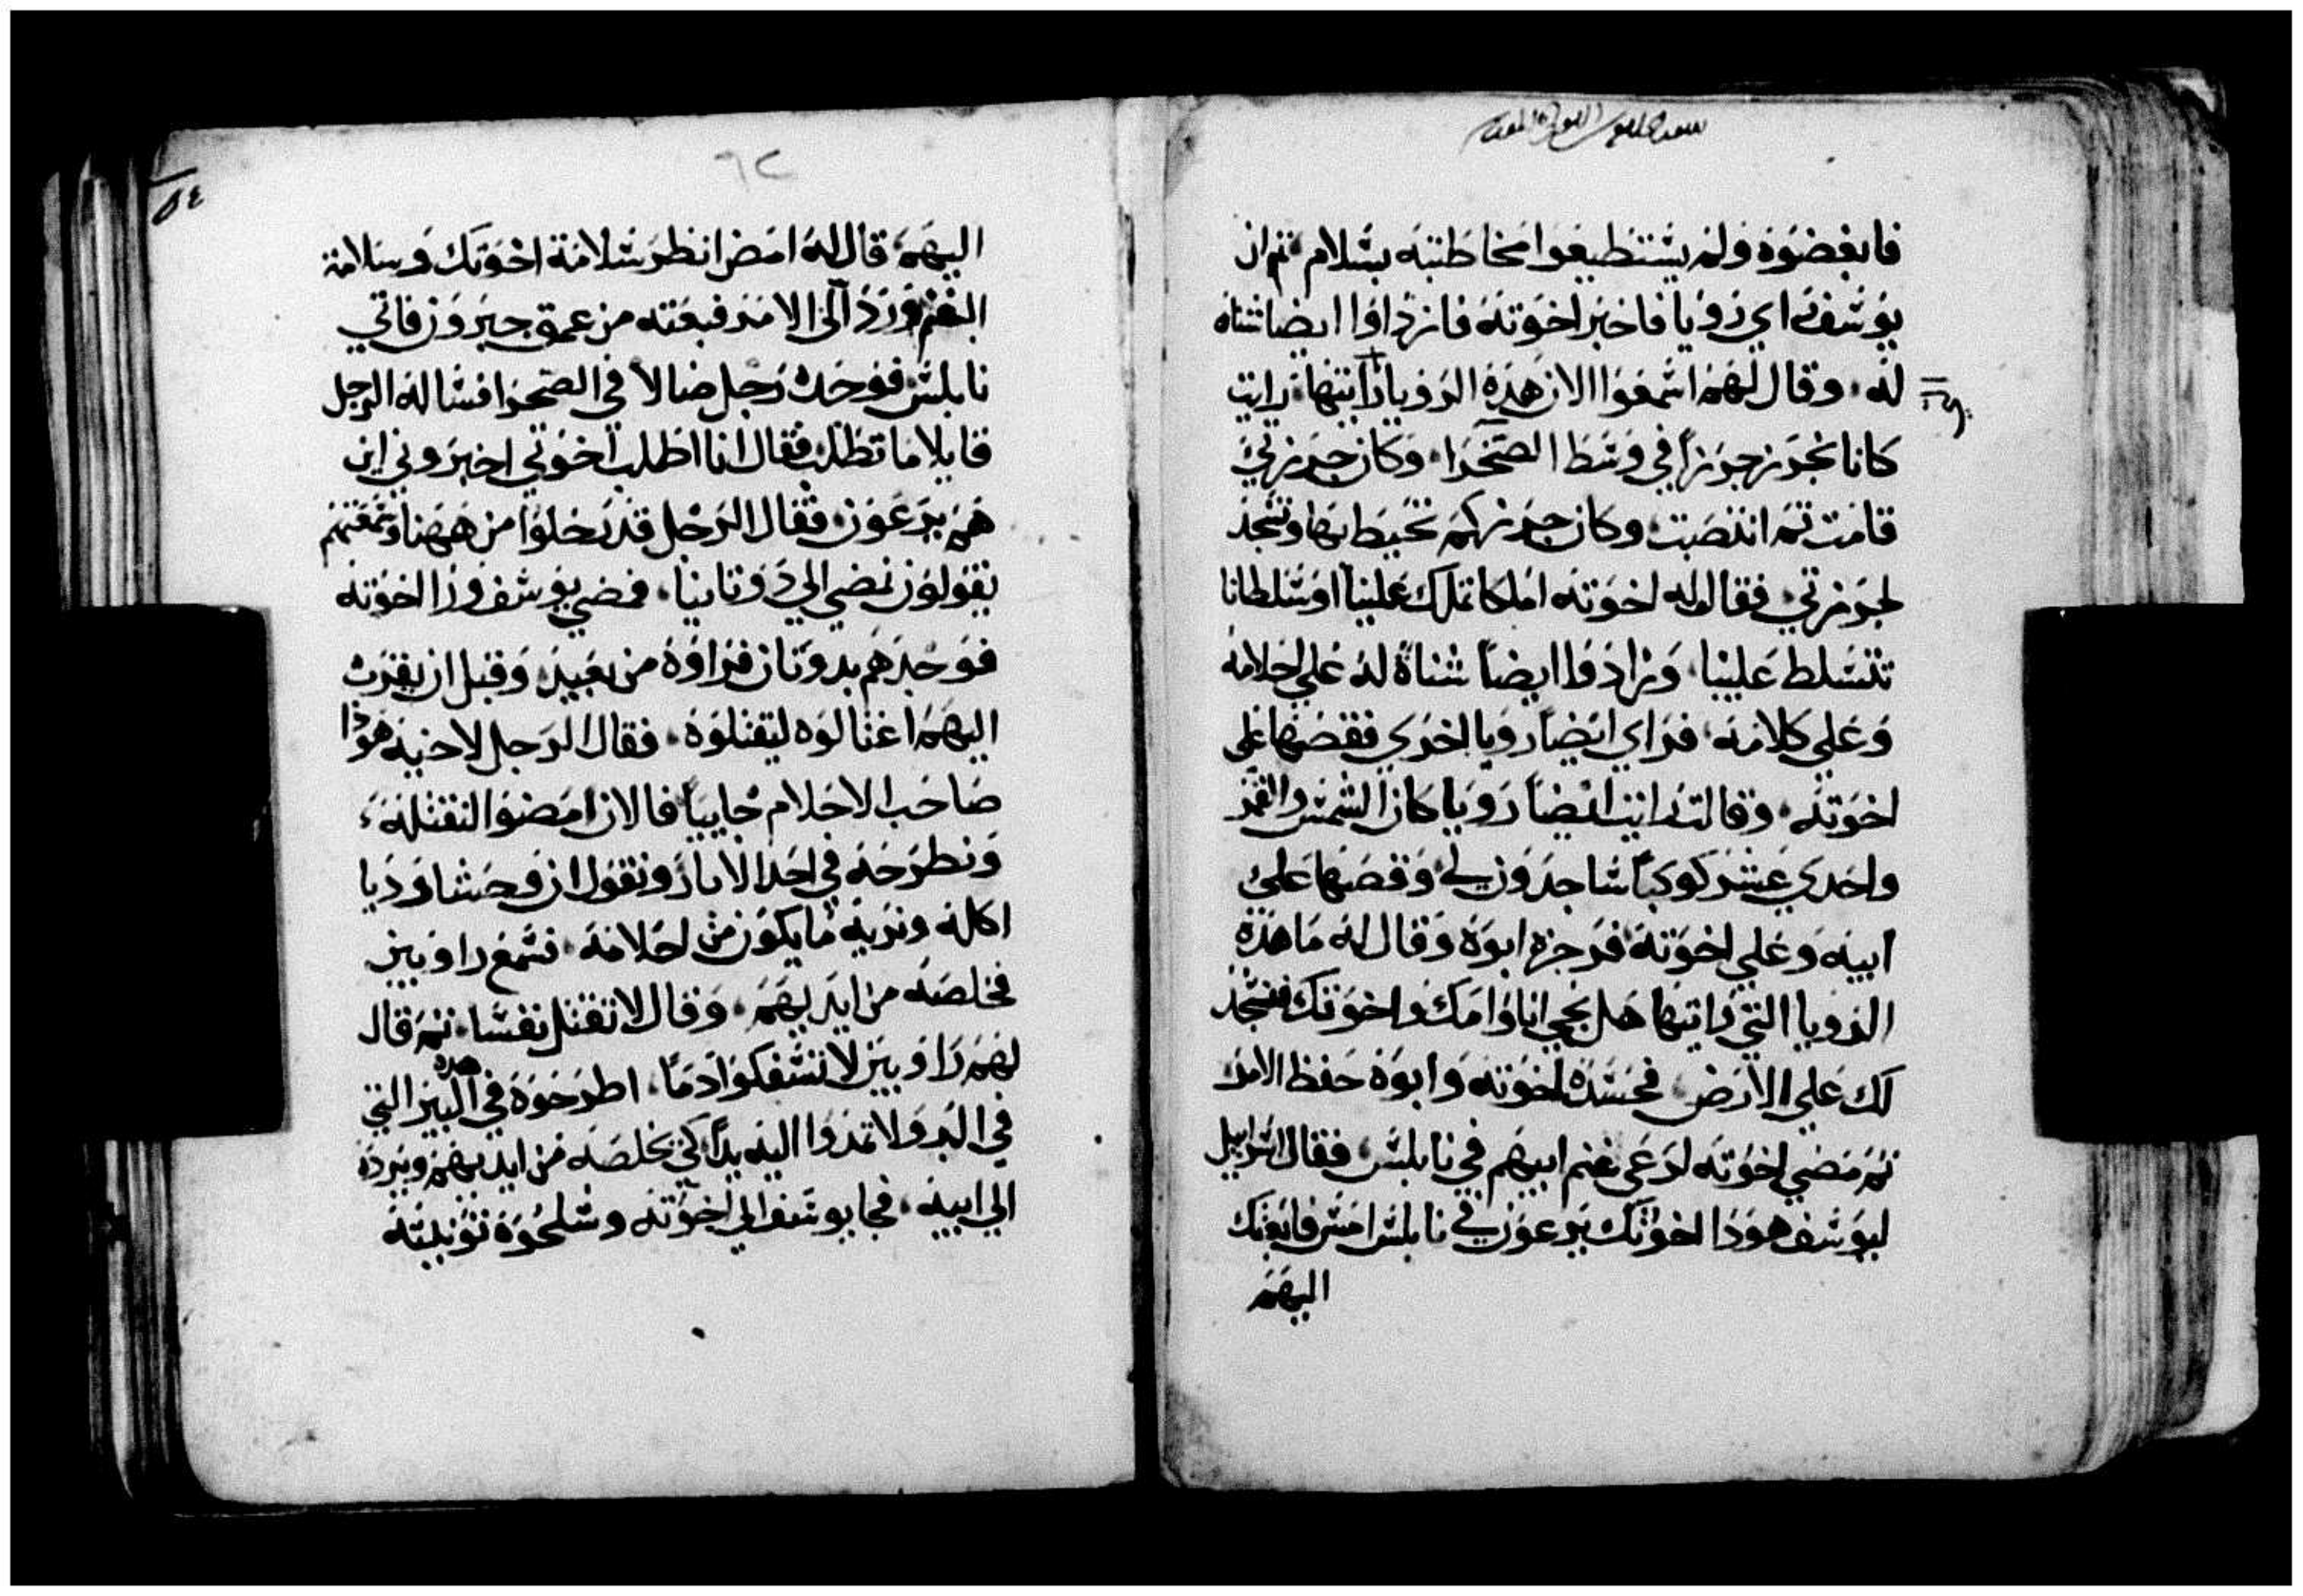 فابغضوه ولم يستطيعوا مخاطبته بسلام ثم ان
يوسف راي رويا فاخبر اخوته فازدادوا ايضا شناه
له وقال لهم اسمعوا الان هذه الرويا رايتها رايت
كانا نحزم جرزاً في وسط الصحرا وكان جرزتي
قامت ثم انتصبت وكان جرزكم تحيط بها وتسجد
لجرزتي فقال له اخوته املكا تملك علينا او سلطانا
تتسلط علينا وزادوا ايضاً شناة له علي احلامه
وعلي كلامه فراي ايضاً رويا اخري فقصها علي
اخوته وقال رايت ايضاً رويا كان الشمس والقمر
واحدي عشر كوكباً ساجدون لي وقصها علي
ابيه وعلي اخوته فزجره ابوه وقال له ما هذه
الرويا التي رايتها هل نجي انا وامك واخوتك فنسجد
لك علي الارض فحسده اخوته وابوه حفظ الامر
ثم مضي اخوته لرعي غنم ابيهم في نابلس فقال اسراييل
ليوسف هوذا اخوتك يرعون في نابلس امش فابعثك
اليهم
٦٢
٥٤
اليهم قال له امض انظر سلامة اخوتك وسلامة
الغنم ورد الي الامر فبعثه من عمق حبرون فاتي
نابلس فوجده رجل ضالا في الصحرا فساله الرجل
قايلا ما تطلب فقال انا اطلب اخوتي اخبروني اين
هم يرعون فقال الرجل قد رحلوا من ههنا وسمعتهم
يقولون نمضي الي دوتاينا فمضي يوسف ورا اخوته
فوجدهم بدوتان فراوه من بعيد وقبل ان يقرب
اليهم اغتالوه ليقتلوه فقال الرجل لاخيه هوذا
صاحب الاحلام جاييا فالان امضوا لنقتله
ونطرحه في احد الابار ونقول ان وحشا رديا
اكله ونريه ما يكون من احلامه فسمع راوبين
فخلصه من ايديهم وقال لا نقتل نفسا ثم قال
لهم راوبين لا تسفكوا دمًا اطرحوه في هذه البير التي
في البر ولا تمدوا اليه يداً كي يخلصه من ايديهم ويرده
الي ابيه فجا يوسف الي اخوته وسلحوه تونيته